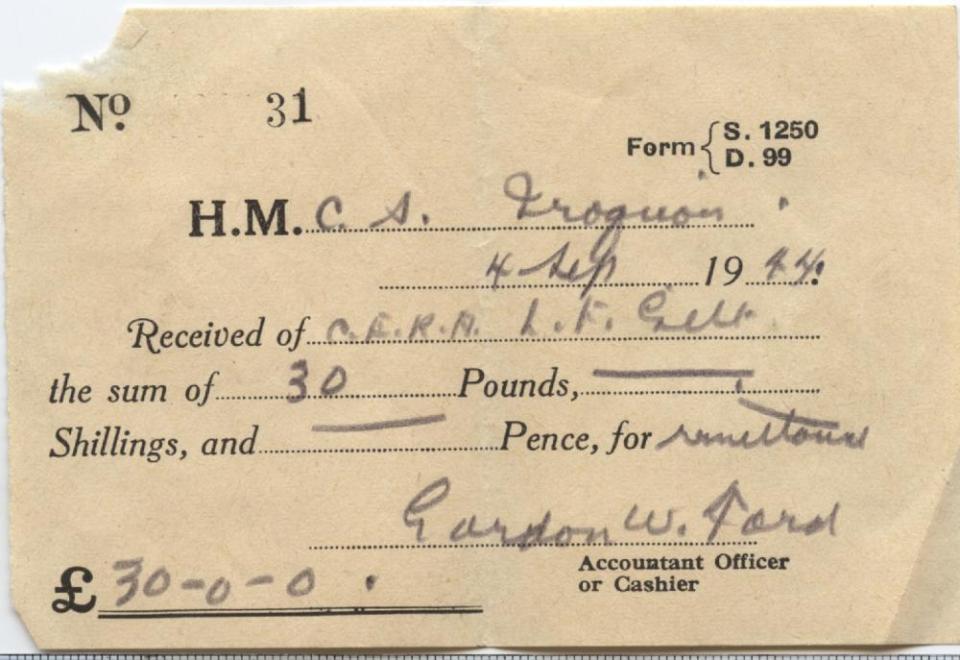 Nº. 31
Form { S. 1250
D. 99
H.M. C. S. Iroquois
4 Sep 19 44.
Received of C.E.R.A. L. F.
the sum of 30 Pounds, —
Shillings, and — Pence, for remittance
Gordon W. Ford
Accountant Officer
or Cashier
£ 30-0-0.